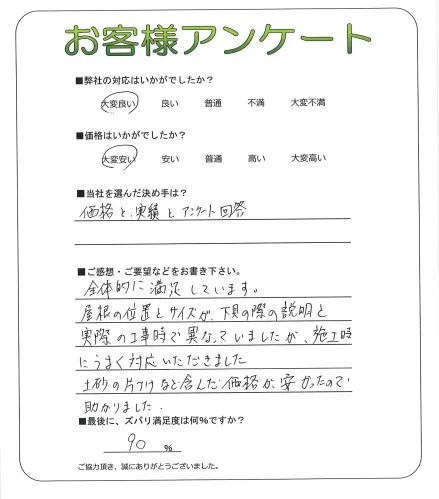 お客様アンケート
■弊社の対応はいかがでしたか？
大変良い 良い 普通 不満 大変不満
■価格はいかがでしたか？
大変安い 安い 普通 高い 大変高い
■当社を選んだ決め手は？
価格と、実績と アンケート回答
■ご感想・ご要望などをお書き下さい。
全体的に満足しています。
屋根の位置とサイズが、下見の際の説明と
実際の工事時で異なっていましたが、施工時
にうまく対応いただきました
土砂の片づけなど含んだ価格が安かったので
助かりました.
■最後に、ズバリ満足度は何%ですか？
90 %
ご協力頂き、誠にありがとうございました。